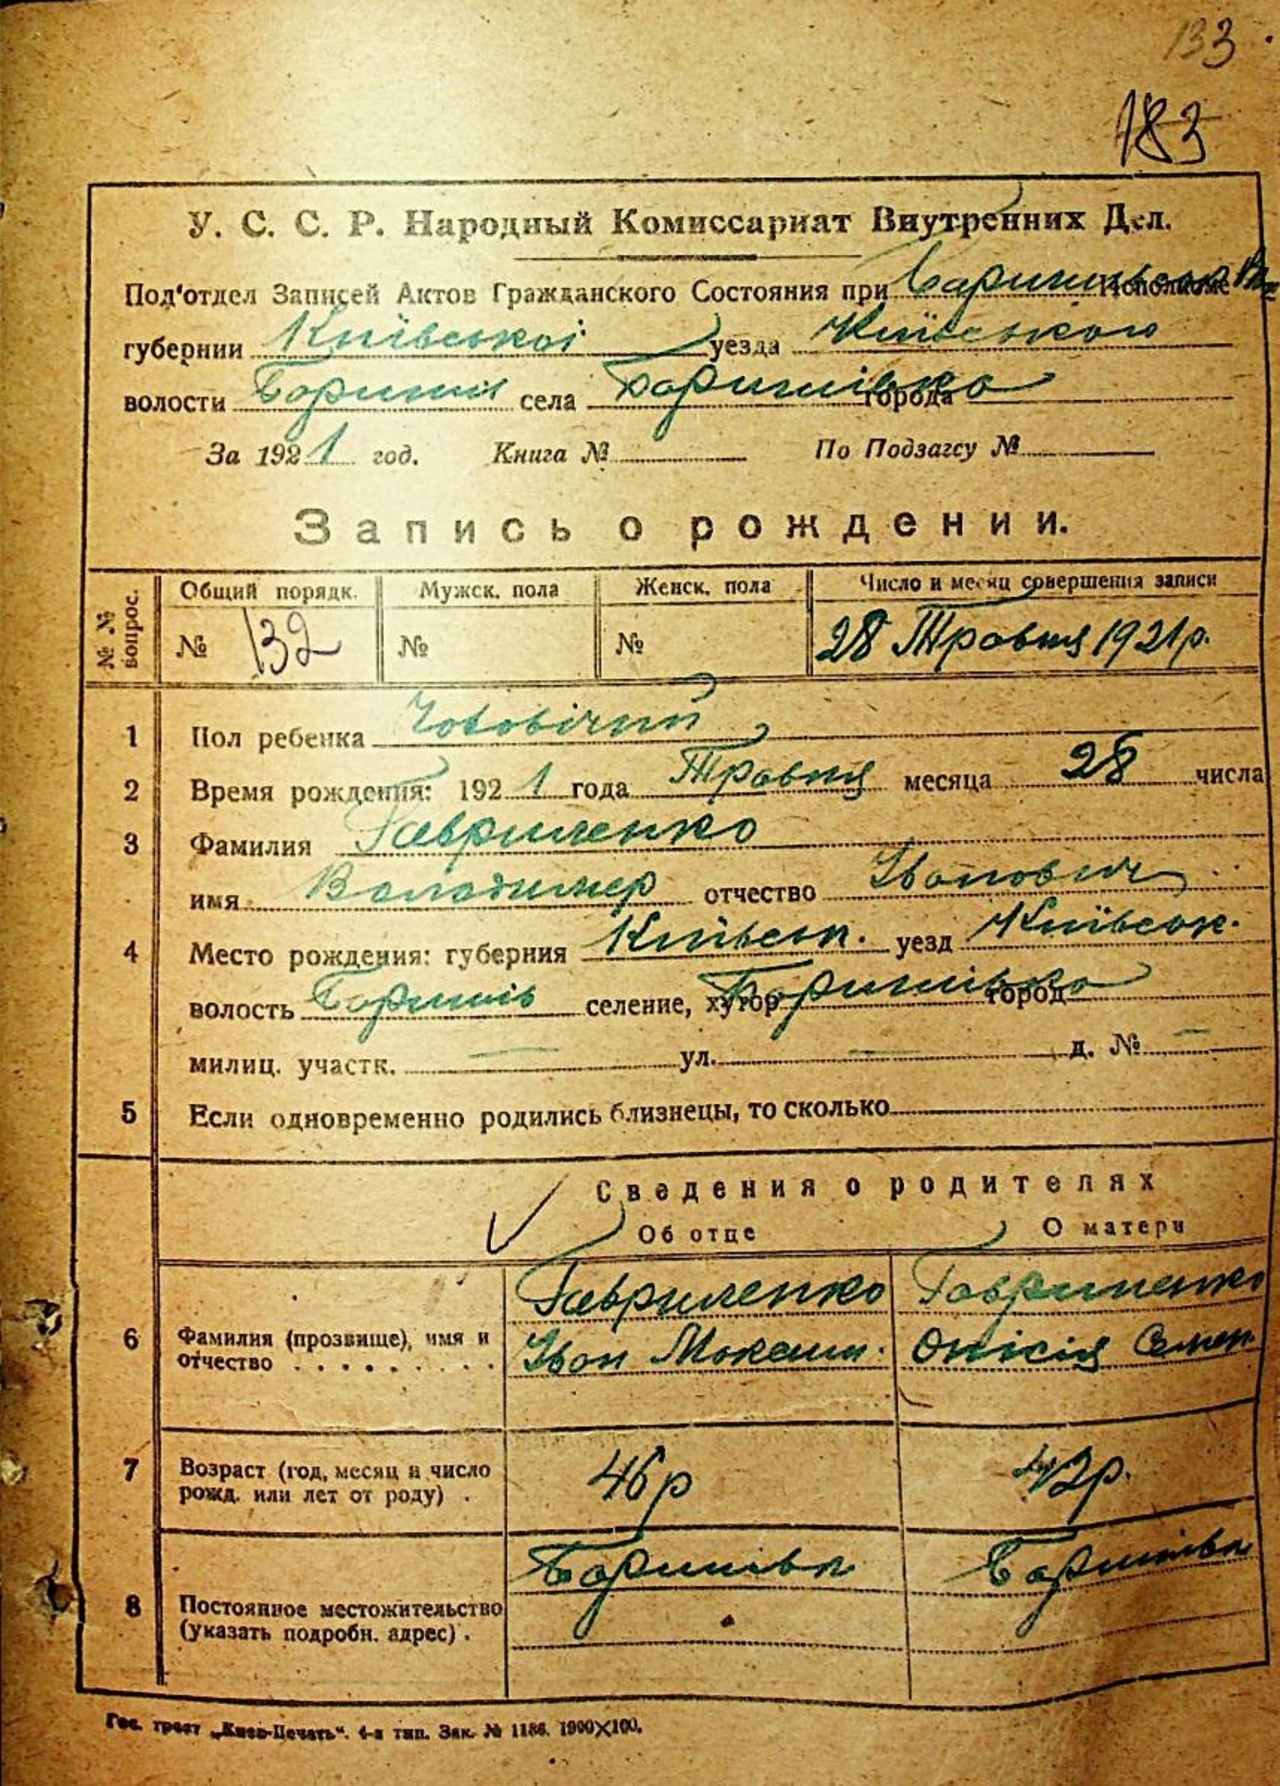 133
183
У. С. С. Р. Народный Комиссариат Внутренних Дел.
Под'отдел Записей Актов Гражданского Состояния при Исполкоме
губернии Київської уезда Київського
волости Баришів села Баришівка города
За 1921 год. Книга № По Подзагсу №
Запись о рождении.
№ № вопрос. Общий порядк. Мужск. пола Женск. пола Число и месяц совершения записи
№ 132 № № 28 Травня 1921р.
1 Пол ребенка Чоловічий
2 Время рождения: 1921 года Травня месяца 28 числа
3 Фамилия Гавриленко
имя Володимер отчество Іванович
4 Место рождения: губерния Київськ. уезд Київськ.
волость Баришів селение, хутор Баришівка город
милиц. участк. — ул. — д. № —
5 Если одновременно родились близнецы, то сколько
Сведения о родителях
Об отце О матери
Гавриленко Гавриленко
6 Фамилия (прозвище), имя и отчество . . . . . . . . . Іван Максим. Онісія Семен.
7 Возраст (год, месяц и число рожд. или лет от роду) . 46р 42р.
Баришівка Баришівка
8 Постоянное местожительство (указать подробн. адрес) .
Гос. трест „Киев-Печать". 4-я тип. Зак. № 1186. 1900X100.